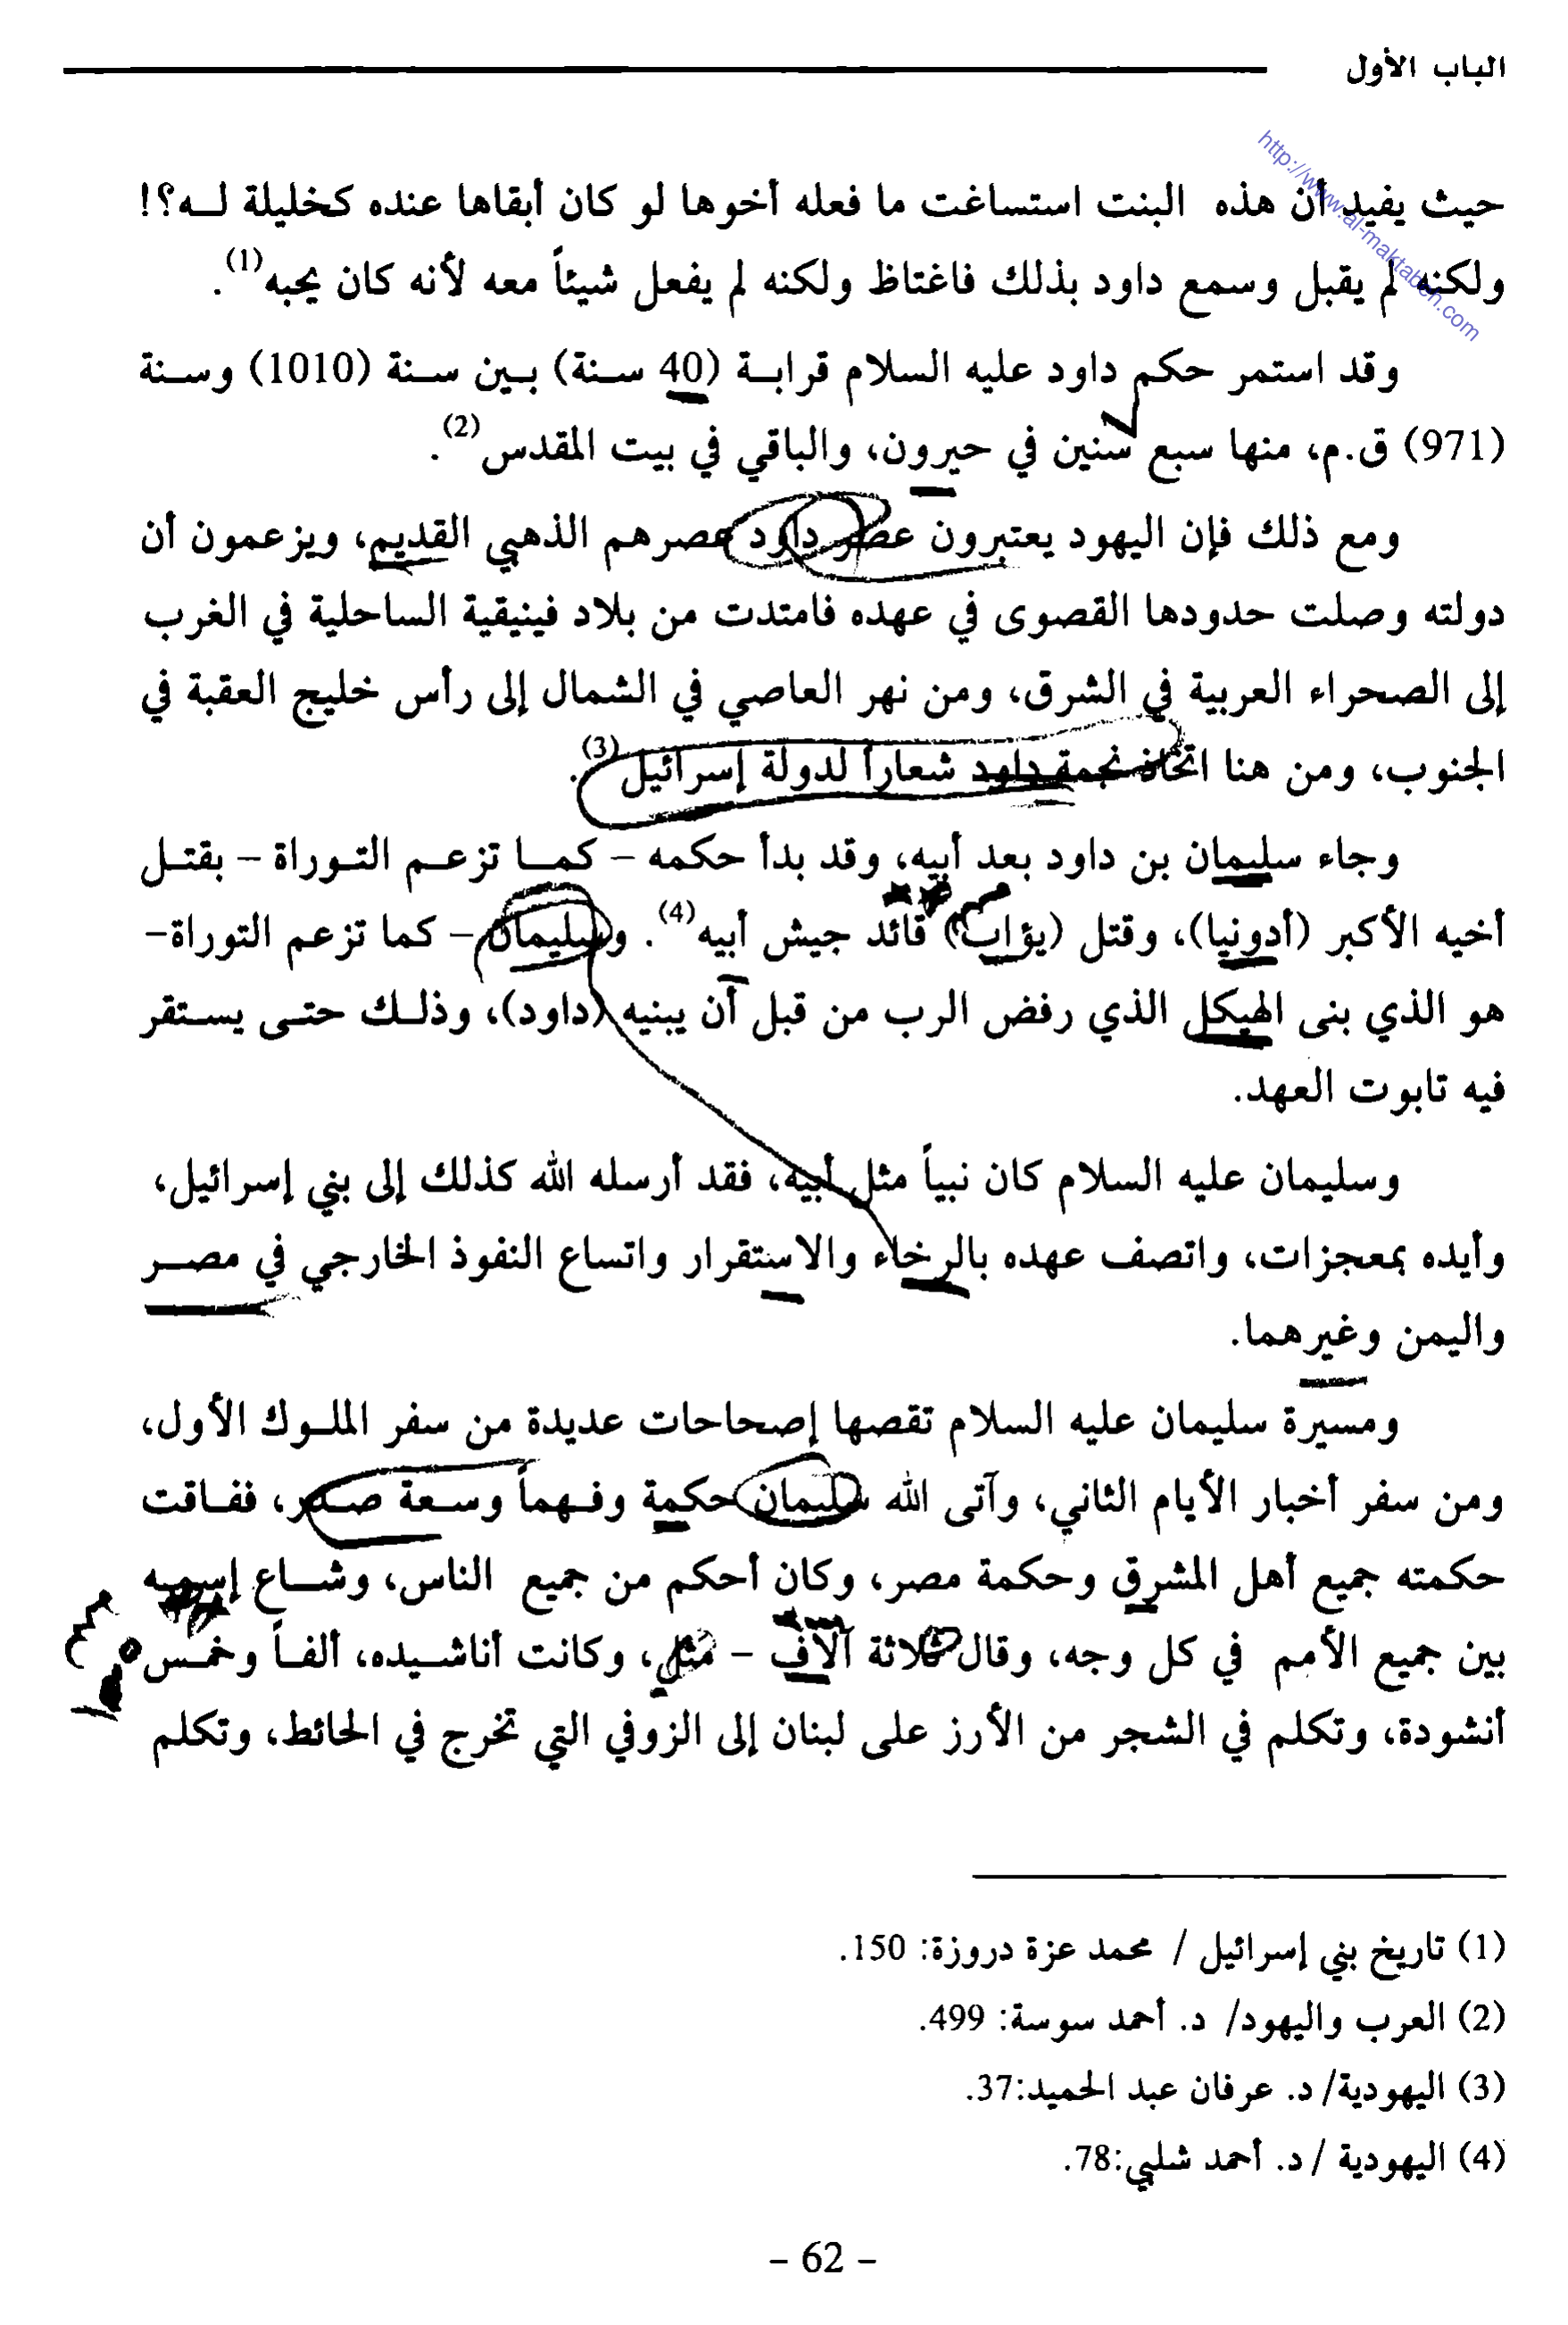 الباب الأول
http://www.al-maktabeh.com
حيث يفيد أن هذه البنت استساغت ما فعله أخوها لو كان أبقاها عنده كخليلة لـه؟!
ولكنه لم يقبل وسمع داود بذلك فاغتاظ ولكنه لم يفعل شيئاً معه لأنه كان يحبه(1).
وقد استمر حكم داود عليه السلام قرابة (40 سنة) بين سنة (1010) وسنة
(971) ق.م، منها سبع سنين في حيرون، والباقي في بيت المقدس(2).
ومع ذلك فإن اليهود يعتبرون عصر داود عصرهم الذهبي القديم، ويزعمون أن
دولته وصلت حدودها القصوى في عهده فامتدت من بلاد فينيقية الساحلية في الغرب
إلى الصحراء العربية في الشرق، ومن نهر العاصي في الشمال إلى رأس خليج العقبة في
الجنوب، ومن هنا اتخاذ نجمة داود شعاراً لدولة إسرائيل(3).
وجاء سليمان بن داود بعد أبيه، وقد بدأ حكمه – كما تزعم التوراة – بقتل
أخيه الأكبر (أدونيا)، وقتل (يؤاب) قائد جيش أبيه(4). وسليمان – كما تزعم التوراة–
هو الذي بنى الهيكل الذي رفض الرب من قبل أن يبنيه (داود)، وذلك حتى يستقر
فيه تابوت العهد.
وسليمان عليه السلام كان نبياً مثل أبيه، فقد أرسله الله كذلك إلى بني إسرائيل،
وأيده بمعجزات، واتصف عهده بالرخاء والاستقرار واتساع النفوذ الخارجي في مصر
واليمن وغيرهما.
ومسيرة سليمان عليه السلام تقصها إصحاحات عديدة من سفر الملوك الأول،
ومن سفر أخبار الأيام الثاني، وآتى الله سليمان حكمة وفهماً وسعة صدر، ففاقت
حكمته جميع أهل المشرق وحكمة مصر، وكان أحكم من جميع الناس، وشاع إسمه
بين جميع الأمم في كل وجه، وقال ثلاثة آلاف – مثل، وكانت أناشيده، ألفاً وخمس
أنشودة، وتكلم في الشجر من الأرز على لبنان إلى الزوفي التي تخرج في الحائط، وتكلم
(1) تاريخ بني إسرائيل / محمد عزة دروزة: 150.
(2) العرب واليهود/ د. أحمد سوسة: 499.
(3) اليهودية/ د. عرفان عبد الحميد:37.
(4) اليهودية / د. أحمد شلبي:78.
– 62 –